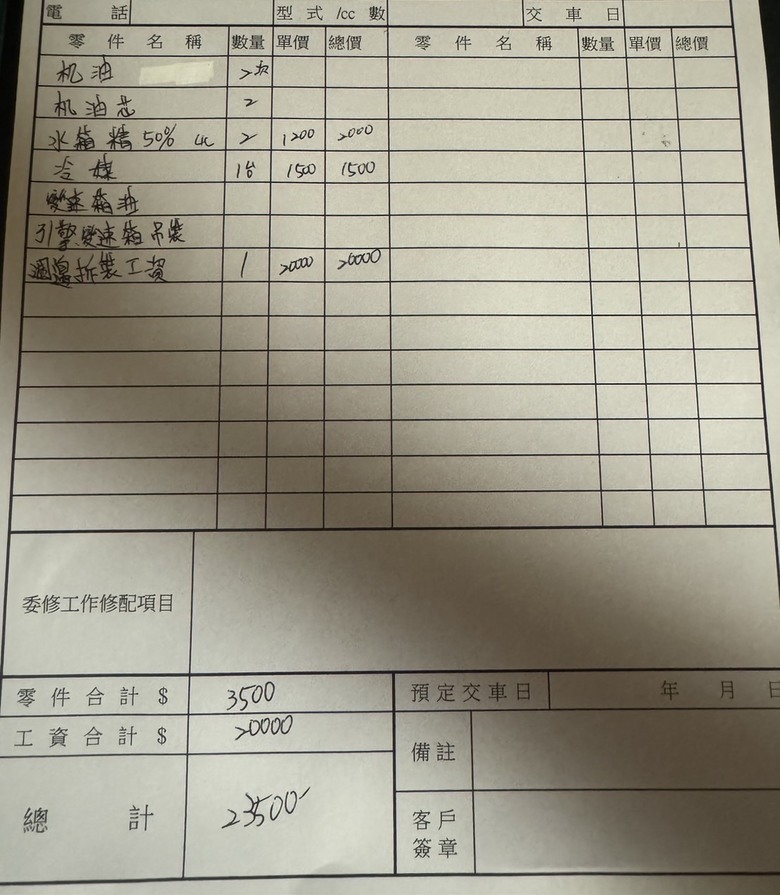 電話 型式/cc數 交車日
零件名稱 數量 單價 總價 零件名稱 數量 單價 總價
机油 2次
机油芯 2
水箱精 50% 4L 2 1200 2000
冷媒 1台 1500 1500
變速箱油
引擎變速箱吊裝
週邊拆裝工資 1 20000 20000
委修工作修配項目
零件合計$ 3500 預定交車日 年 月 日
工資合計$ 20000
備註
總計 23500
客戶
簽章